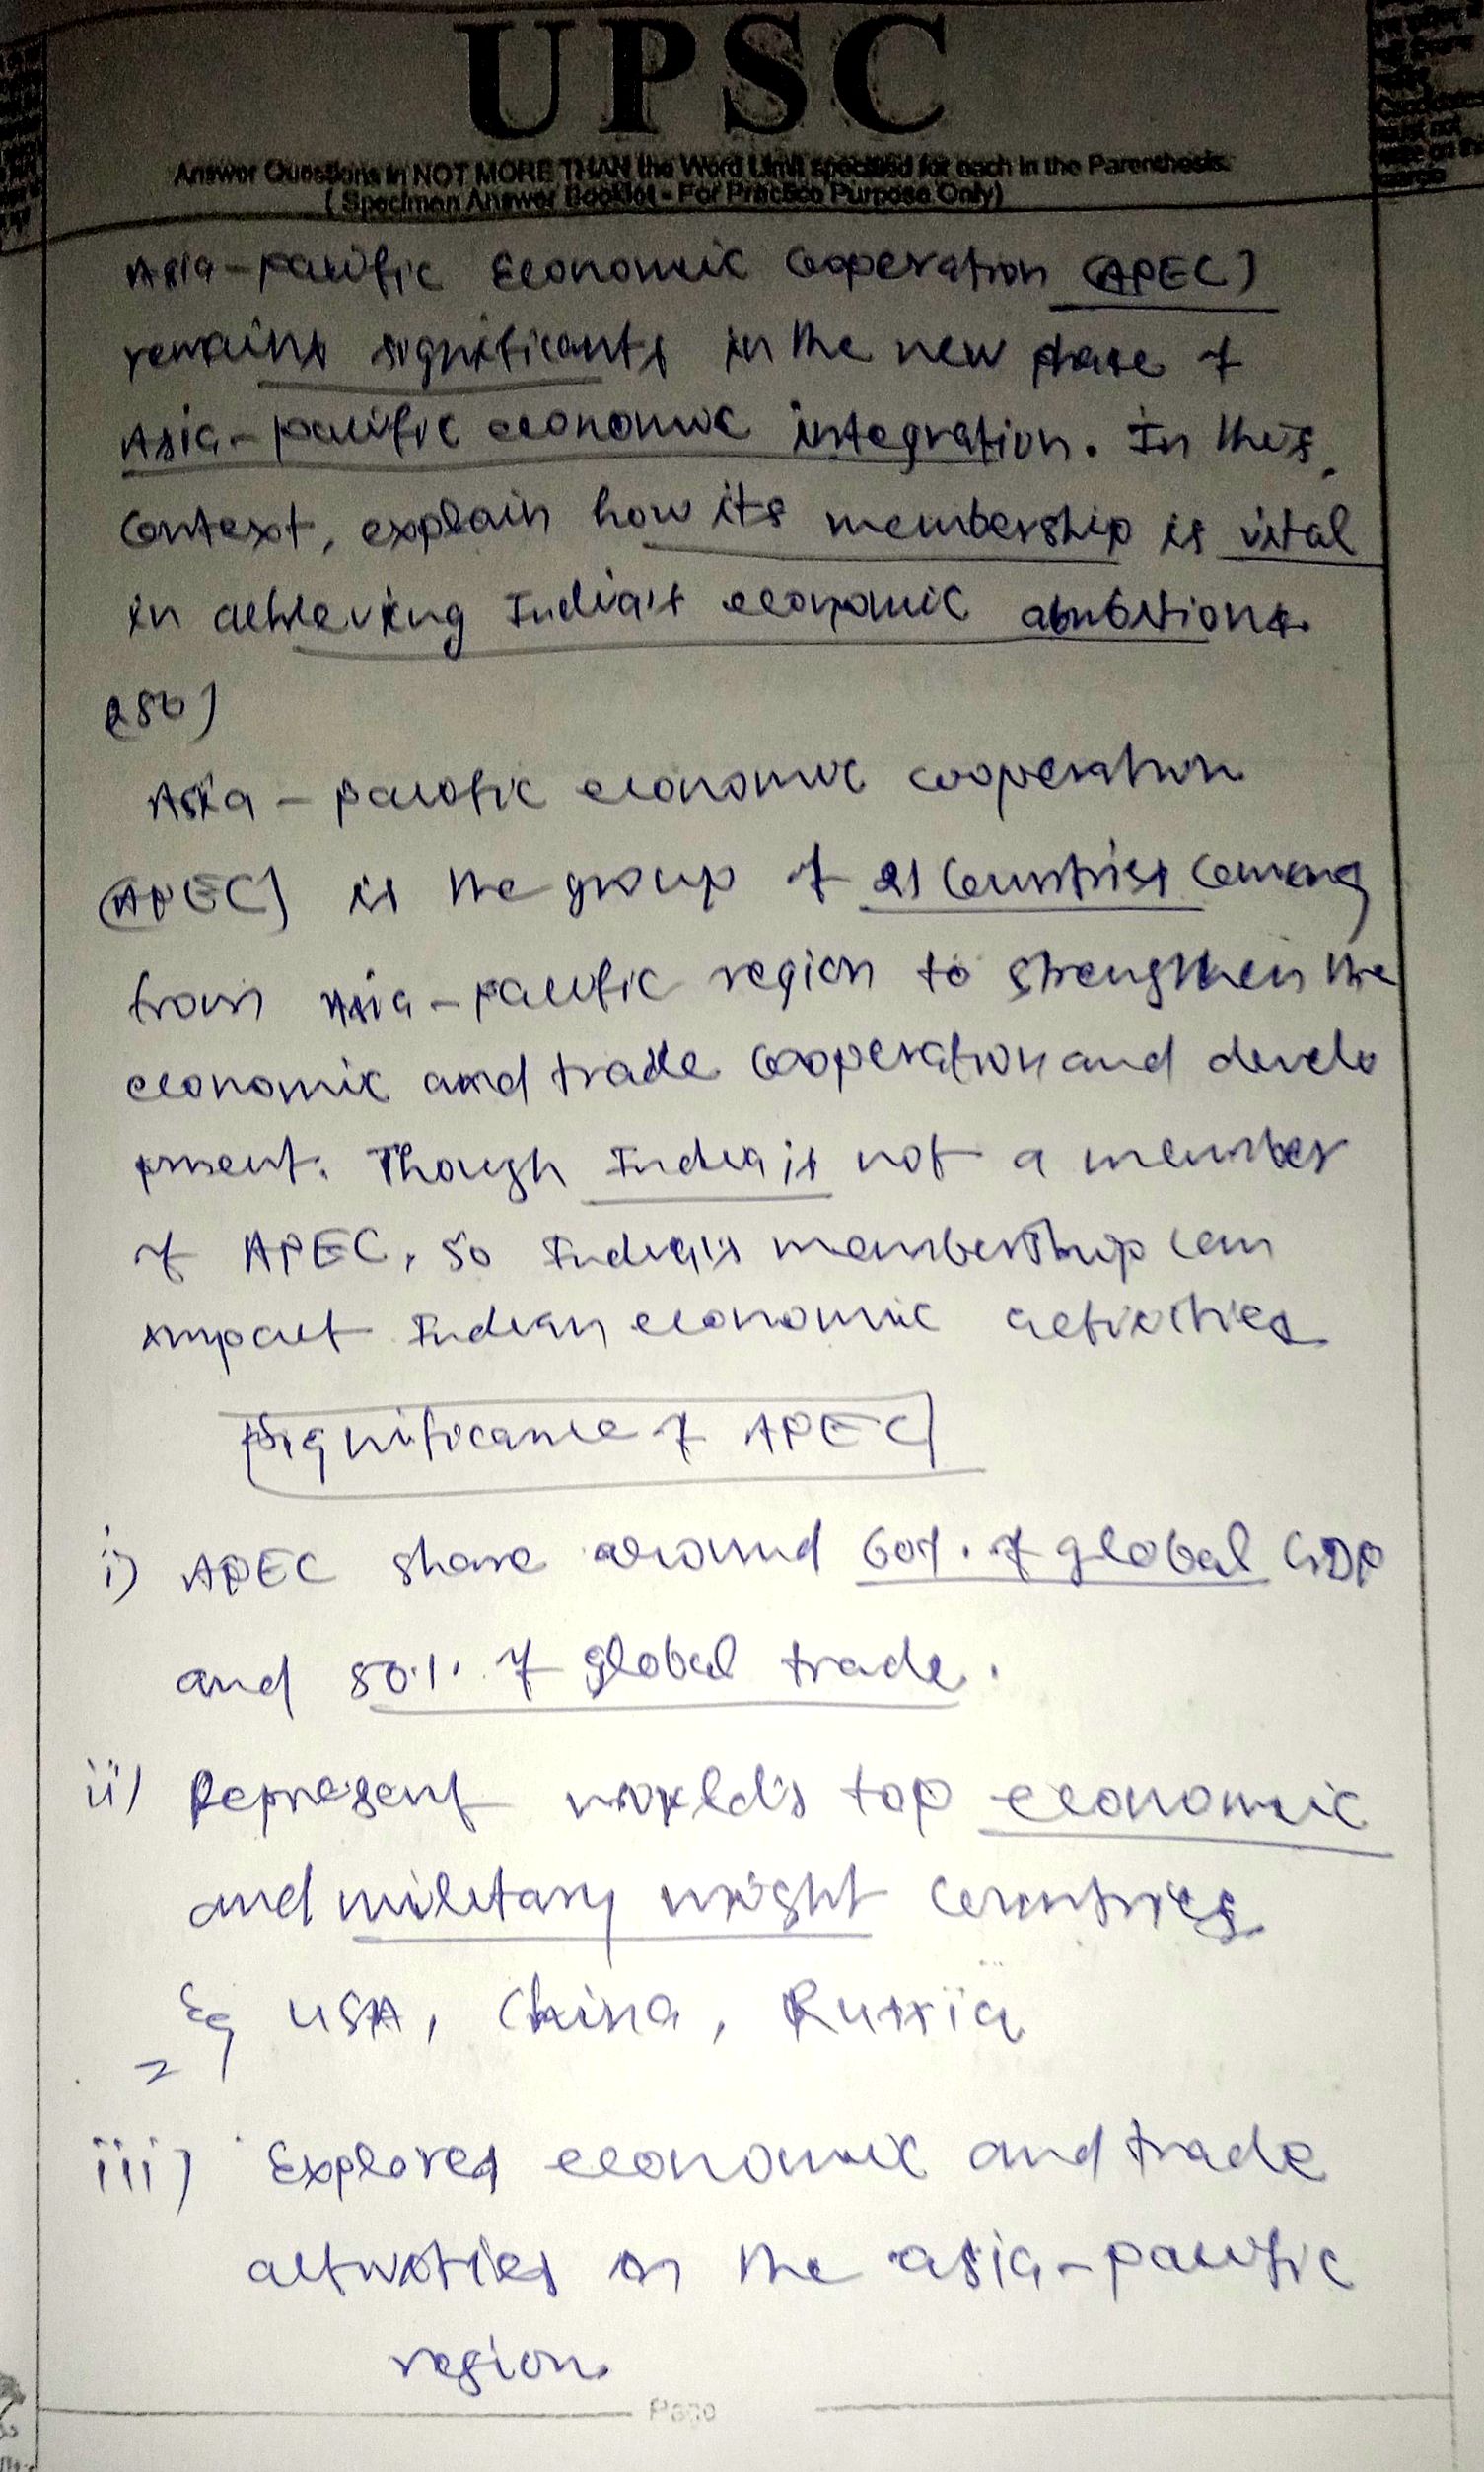 UPSC
Answer Questions in NOT MORE THAN the Word Limit specified for each in the Parenthesis.
( Specimen Answer Booklet - For Practice Purpose Only)
Asia-pacific Economic Cooperation (APEC)
remains significants in the new phase of
Asia-pacific economic integration. In this
Context, explain how its membership is vital
in achieving India's economic ambitions.
250)
Asia - pacific economic cooperation
(APEC) is the group of 21 Countries coming
from Asia-pacific region to strengthen the
economic and trade cooperation and develo
pment. Though India is not a member
of APEC, so India's membership can
impact Indian economic activities
Significance of APEC
i) APEC share around 60%. of global GDP
and 50%. of global trade.
ii) Represent world's top economic
and military might countries
Eg USA, China, Russia
iii) Explores economic and trade
activities in the asia-pacific
region.
Page